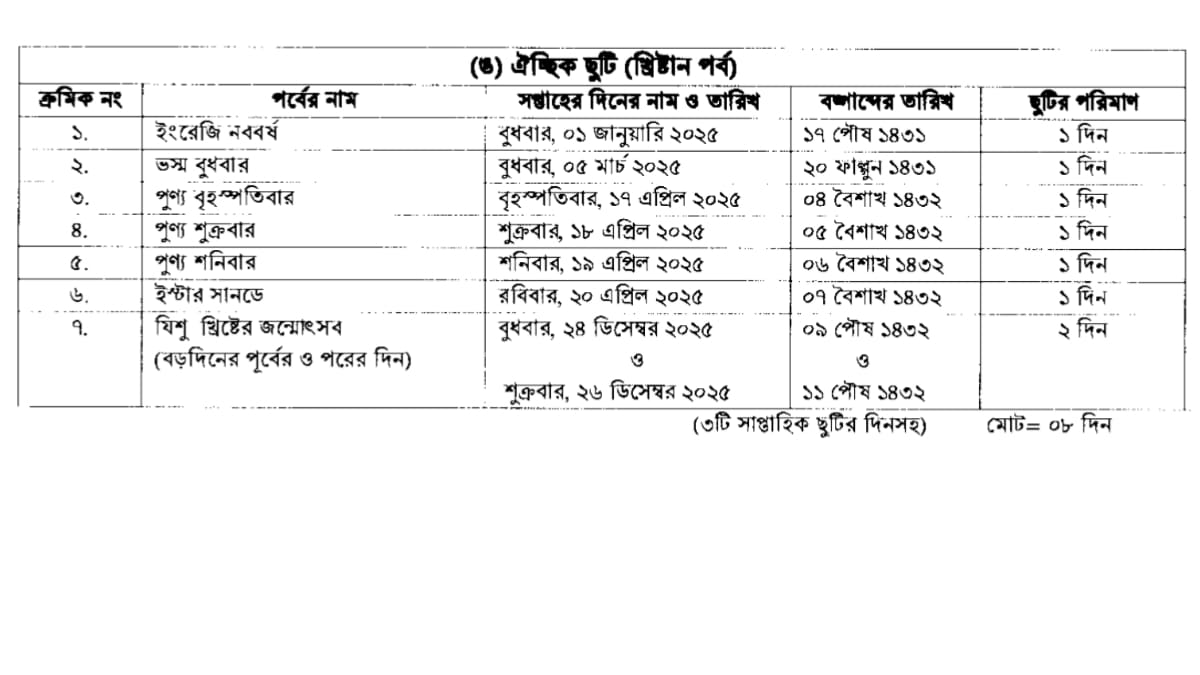 (ঙ) ঐচ্ছিক ছুটি (খ্রিষ্টান পর্ব)
ক্রমিক নং পর্বের নাম সপ্তাহের দিনের নাম ও তারিখ বঙ্গাব্দের তারিখ ছুটির পরিমাণ
১. ইংরেজি নববর্ষ বুধবার, ০১ জানুয়ারি ২০২৫ ১৭ পৌষ ১৪৩১ ১ দিন
২. ভস্ম বুধবার বুধবার, ০৫ মার্চ ২০২৫ ২০ ফাল্গুন ১৪৩১ ১ দিন
৩. পুণ্য বৃহস্পতিবার বৃহস্পতিবার, ১৭ এপ্রিল ২০২৫ ০৪ বৈশাখ ১৪৩২ ১ দিন
৪. পুণ্য শুক্রবার শুক্রবার, ১৮ এপ্রিল ২০২৫ ০৫ বৈশাখ ১৪৩২ ১ দিন
৫. পুণ্য শনিবার শনিবার, ১৯ এপ্রিল ২০২৫ ০৬ বৈশাখ ১৪৩২ ১ দিন
৬. ইস্টার সানডে রবিবার, ২০ এপ্রিল ২০২৫ ০৭ বৈশাখ ১৪৩২ ১ দিন
৭. যিশু খ্রিষ্টের জন্মোৎসব বুধবার, ২৪ ডিসেম্বর ২০২৫ ০৯ পৌষ ১৪৩২ ২ দিন
(বড়দিনের পূর্বের ও পরের দিন) ও ও
শুক্রবার, ২৬ ডিসেম্বর ২০২৫ ১১ পৌষ ১৪৩২
(৩টি সাপ্তাহিক ছুটির দিনসহ) মোট= ০৮ দিন